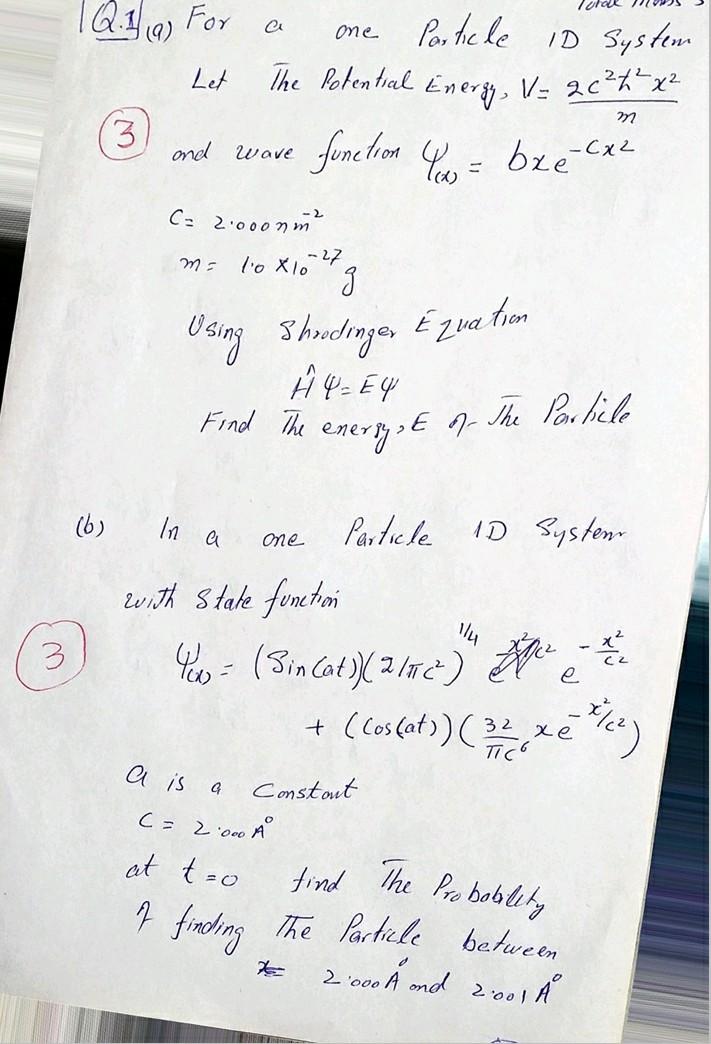 Q.1 (a) For a one Particle 1D System
Let The Potential Energy, V= 2c²ħ²x²/m
③ and wave function Ψ(x) = bxe^-Cx2
C= 2.000 nm⁻²
m= 1.0 X10⁻²⁷ g
Using Shrodinger Equation
ĤΨ=EΨ
Find The energy, E of The Particle
(b) In a one Particle 1D System
with State function
③ Ψ(x) = (Sin(at))(2/πc²)^1/4 e^-x²/c²
+ (Cos(at))(32/πc⁶ xe^-x²/c²)
a is a Constant
C= 2.000 Å
at t=0 find The Probability
of finding The Particle between
2.000 Å and 2.001 Å